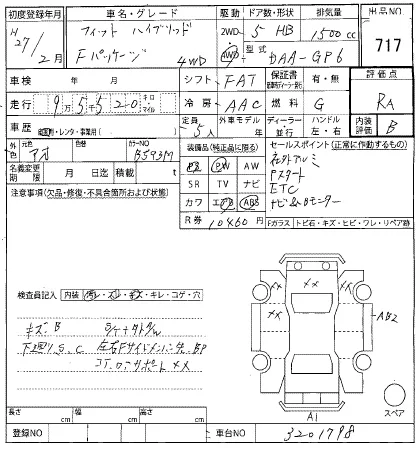 初度登録年月 車名・グレード 駆動 ドア数・形状 排気量 出品NO
H 27/2月 フィット ハイブリッド 2WD 5 HB 1500cc 717
Fパッケージ 4WD 4WD 型式 DAA-GP6
車検 年 月 シフト FAT 保証書 有・無 評価点
走行 9万5千520 キロ マイル 冷房 AAC 燃料 G RA
車歴 自家用・レンタ・事業用( ) 定員 5人 外車モデル 年 ディーラー 並行 ハンドル 左・右 内装評価 B
外色 元色 アオ 色替 カラーNO B593M 装備品(純正品に限る) セールスポイント(正常に作動するもの)
名義変更期限 月 日迄 積載 t PS PW AW 社外アルミ
注意事項(欠品・修復・不具合箇所および状態) SR TV ナビ Pスタート
カワ エアB ABS ETC
R券 10460円 ナビ&Bモニター
Fガラス トビ石・キズ・ヒビ・ワレ・リペア跡
検査員記入 内装 汚レ・スレ・キズ・キレ・コゲ・穴
キズ.B
下廻りS.C
コア.ロアサポート メメ
メメ
AB2
A1
スペア
長さ cm 幅 cm 高さ cm
登録NO 車台NO 3201798